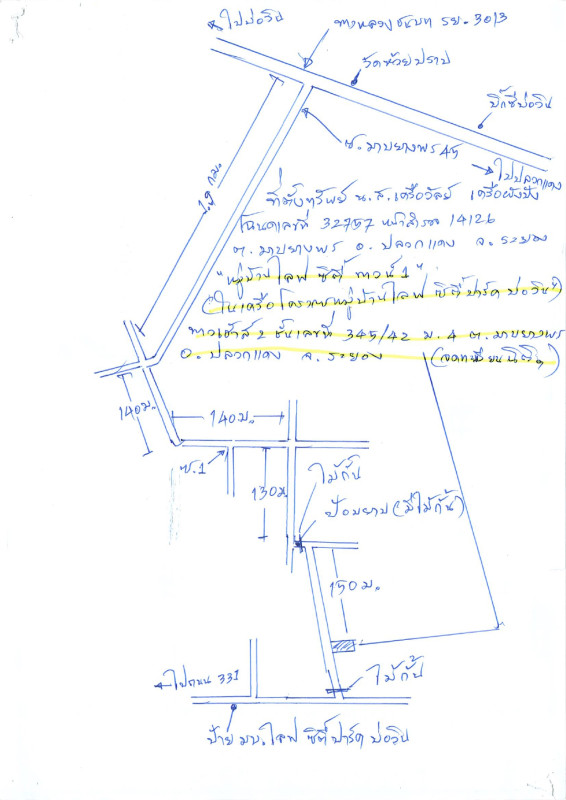 ไปบ่อวิน
ทางหลวงชนบท รย. 3013
วัดห้วยปราบ
บิ๊กซีบ่อวิน
ซ. มาบยางพร 45
ไปปลวกแดง
1.9 กม.
ที่ตั้งทรัพย์ น.ส.เครือวัลย์
โฉนดเลขที่ 32757 หน้าสำรวจ 14126
ต. มาบยางพร อ. ปลวกแดง จ. ระยอง
"หมู่บ้านไลฟ ซิตี้ ทาวน์ 1"
(ในเครือโครงการหมู่บ้านไลฟ ซิตี้ ปาร์ค บ่อวิน)
ทาวเฮ้าส์ 2 ชั้นเลขที่ 345/42 ม. 4 ต. มาบยางพร
อ. ปลวกแดง จ. ระยอง (จดทะเบียนนิติฯ)
140 ม.
140 ม.
ซ. 1
130 ม.
ไม้กั้น
ป้อมยาม (มีไม้กั้น)
150 ม.
ไม้กั้น
ไปถนน 331
ป้าย มบ. ไลฟ ซิตี้ ปาร์ค บ่อวิน